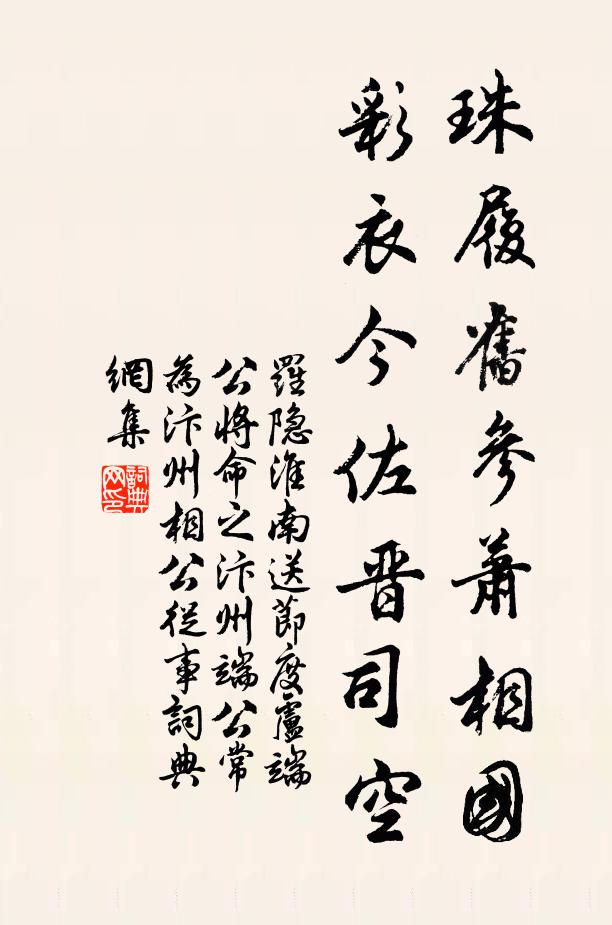 珠履舊參蕭相國
彩衣今佐晋司空
羅隐淮南送節度盧端
公將命之汴州端公常
為汴州相公從事詞典
網集
詞典網印